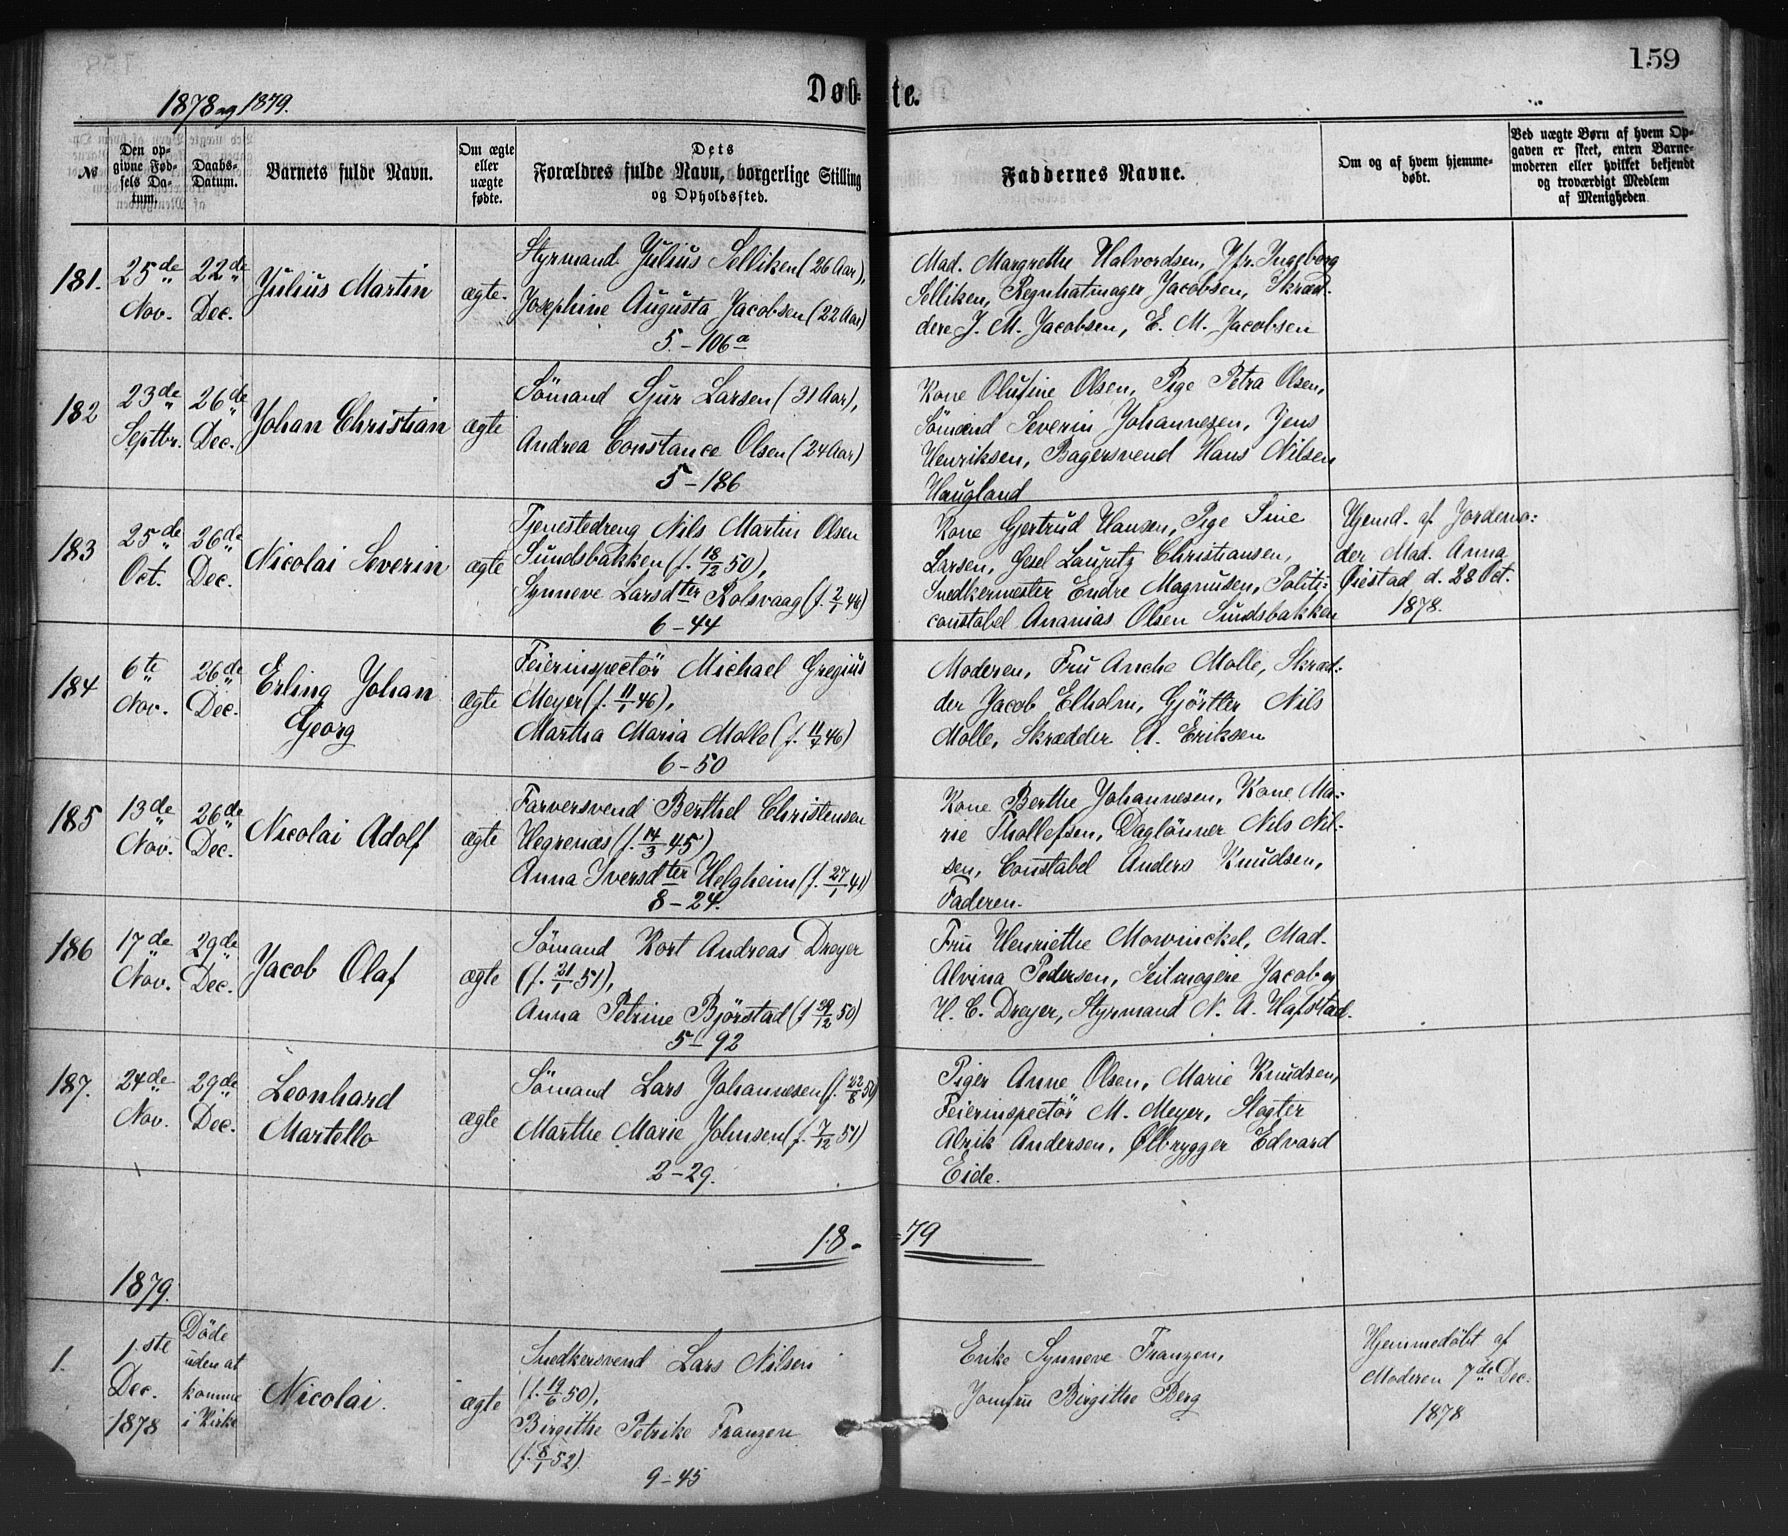 159
1878 og 1879.
Døbte.
No
Den opgivne Fødsels Datum.
Daabs-Datum.
Barnets fulde Navn.
Om ægte eller uægte fødte.
Dets Forældres fulde Navn, borgerlige Stilling og Opholdssted.
Faddernes Navne.
Om og af hvem hjemmedøbt.
Ved uægte Børn af hvem Opgaven er skeet, enten Barnemoderen eller hvilket bekjendt og troværdigt Medlem af Menigheden
181.
25de Nov.
22de Dec.
Julius Martin
ægte.
Styrmand Julius Selliken (26 Aar),
Josephine Augusta Jacobsen (22 Aar)
5.-106a
Mad. Margrethe Halvordsen, Jfr. Ingeborg
Selliken, Jacobsen, Skræd-
dere J. M. Jacobsen, E. M. Jacobsen
182
23de Septbr.
26de Dec.
Johan Christian
ægte
Sömand Sjur Larsen (31 Aar),
Andrea Constance Olsen (24 Aar)
5-186
Kone Olufine Olsen, Pige Petra Olsen,
Sömand Severin Johannesen, Jens
Henriksen, Bagersvend Hans Nilsen
Haugland
183
25de Oct.
26de Dec.
Nicolai Severin
ægte
Tjenestedreng Nils Martin Olsen
Sundsbakken (f. 18/12 50),
Synneve Larsdter Rolsvaag (f. 2/1 46)
6-44
Kone Gjertrud Hansen, Pige Sine
Larsen, Gesel Lauritz Christiansen,
Snedkermester Endre Magnusen, Politi:
constabel Ananias Olsen Sundsbakken
Hjemd. af Jordemo:
der Mad. Anna
Øiestad d. 28 Oct.
1878.
184
6te Nov.
26de Dec.
Erling Johan
Georg
ægte
Feierinspectör Michael Gregius
Meyer (f. 11/1 46),
Martha Maria Molle (f. 11/7 46)
6-50
Moderen, Fru Anche Molle, Skræd:
der Jacob Elholm, Gjörtler Nils
Molle, Skrædder A. Eriksen
185
13de Nov.
26de Dec.
Nicolai Adolf
ægte
Farversvend Berthel Christensen
Hegrenæs (f. 14/3 45)
Anna Iversdter Helgheim (f. 27/1 41)
8-24.
Kone Berthe Johannesen, Kone Ma:
rie Thollefsen, Daglönner Nils Nil:
sen, Constabel Anders Knudsen,
Faderen.
186
17de Nov.
29de Dec.
Jacob Olaf
ægte
Sömand Kort Andreas Dreyer
(f. 31/1 51),
Anna Petrine Björstad (f 29/12 50)
5-92
Fru Henriethe Mowinckel, Mad.
Alvina Pedersen, Seilmagere Jacob og
H. C. Dreyer, Styrmand N. A. Hafstad.
187.
24de Nov.
29de Dec.
Leonhard
Martello
ægte
Sömand Lars Johannesen (f. 22/8 50)
Marthe Marie Johnsen (f. 7/12 51)
2-29.
Piger Anne Olsen, Marie Knudsen,
Feierinspectör M. Meyer, Slagter
Alrik Andersen, Ølbrygger Edvard
Eide.
18-79
1879.
1.
1.ste Dec. 1878
Döde uden at komme i Kirke
Nicolai.
ægte
Snedkersvend Lars Nilsen
(f. 19/6 50),
Birgithe Petrike Franzen
(f. 8/1 52)
9-45
Enke Synneve Franzen,
Jomfru Birgithe Berg
Hjemmedöbt af
Moderen 7de Dec.
1878